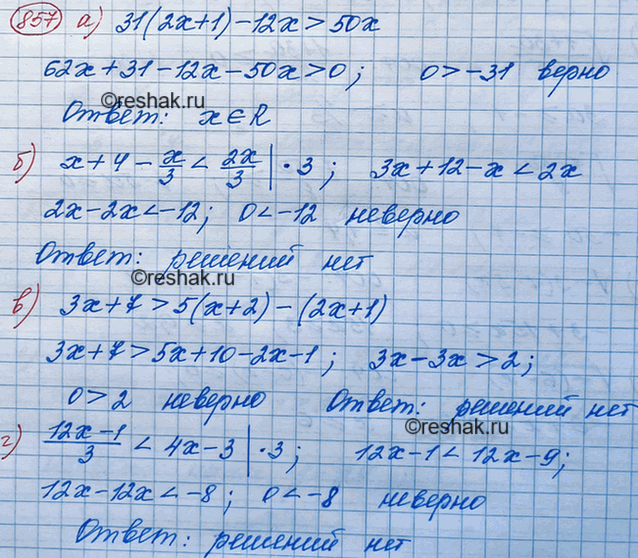 857 а) 31(2x+1)-12x>50x
62x+31-12x-50x>0; 0>-31 верно
©reshak.ru
Ответ: x∈R
б) x+4-x/3<2x/3 |·3; 3x+12-x<2x
2x-2x<-12; 0<-12 неверно
Ответ: решений нет
©reshak.ru
в) 3x+7>5(x+2)-(2x+1)
3x+7>5x+10-2x-1; 3x-3x>2;
0>2 неверно Ответ: решений нет
©reshak.ru
г) (12x-1)/3<4x-3 |·3; 12x-1<12x-9;
12x-12x<-8; 0<-8 неверно
Ответ: решений нет